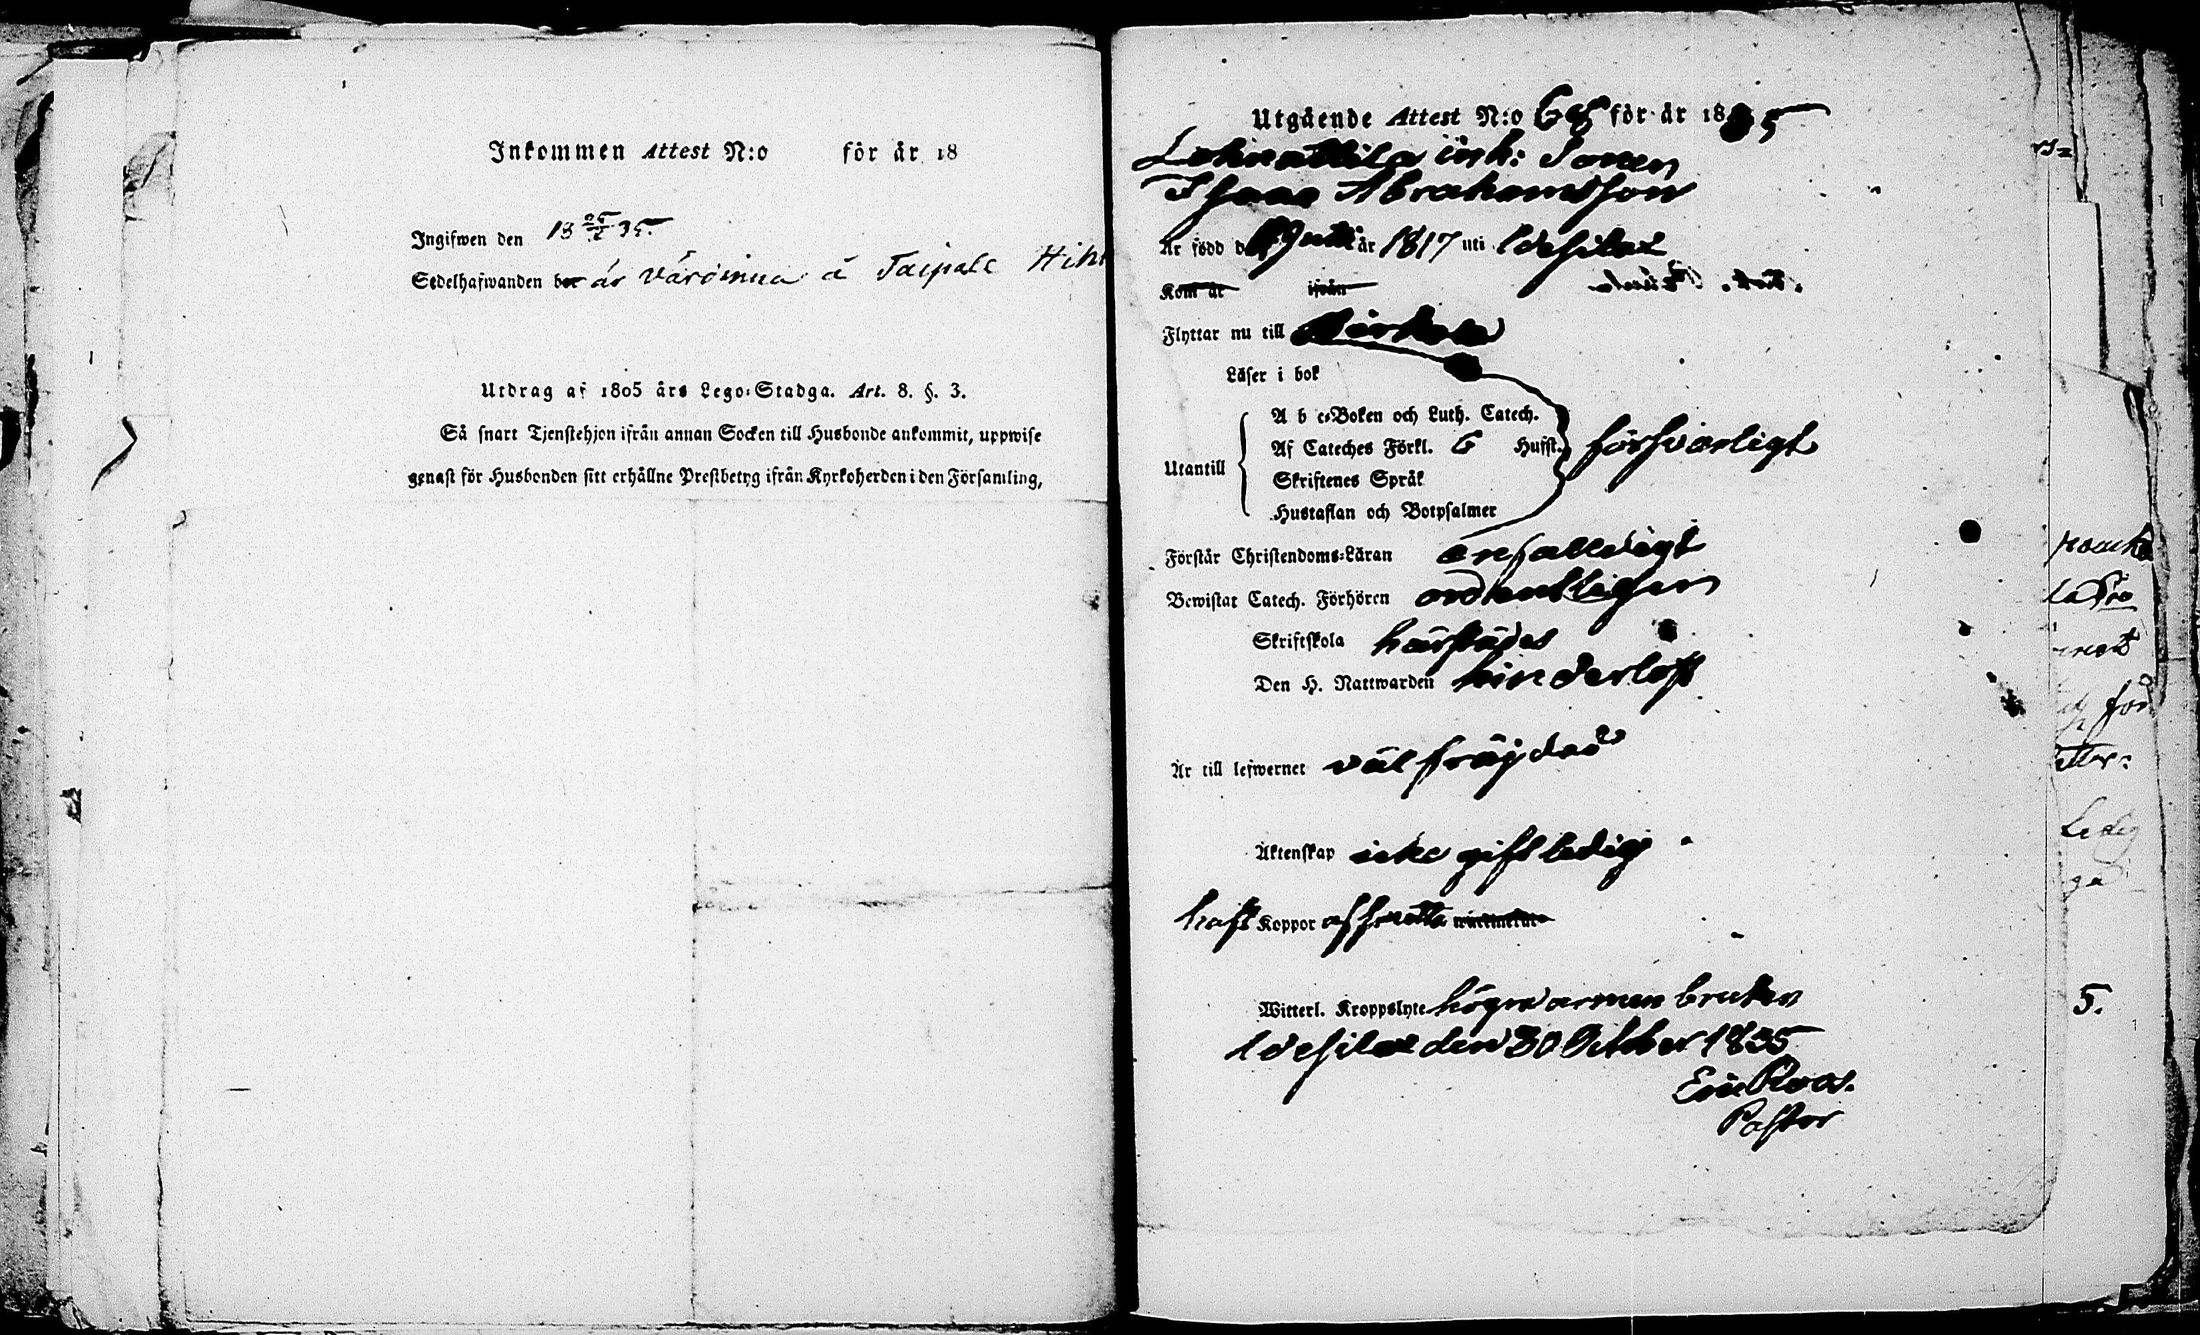 Inkommen Attest N:o för år 18
Ingifwen den 18 25/5 35.
Sedelhafwanden bor är värdinna å Taipale
Utdrag af 1805 års Lego-Stadga. Art. 8. §. 3.
Så snart Tjenstehjon ifrån annan Socken till Husbonde ankommit, uppwise
genast för Husbonden sitt erhållne Prestbetyg ifrån Kyrkoherden i den Församling,
Utgående Attest N:o 68 för år 1835
inh: Sonen
Isaac Abrahamsson
Är född d Juli år 1817 uti Idesilmi
Kom år ifrån
Flyttar nu till
Läser i bok
A b c-Boken och Luth. Catech.
Af Cateches Förkl. 6 Hufst. försvarligt
Utantill
Skriftenes Språk
Hustaflan och Botpsalmer
Förstår Christendoms-Läran enfalldigt
Bewistat Catech. Förhören ordentligen
Skriftskola härstädes
Den H. Nattwarden hinderlöst
Är till lefwernet väl fräjdad
Äktenskap icke gift ledig
haft Koppor
Witterl. Kroppslyte högra armen bruten
den 30 October 1835
Eric Roos.
Pastor
5.